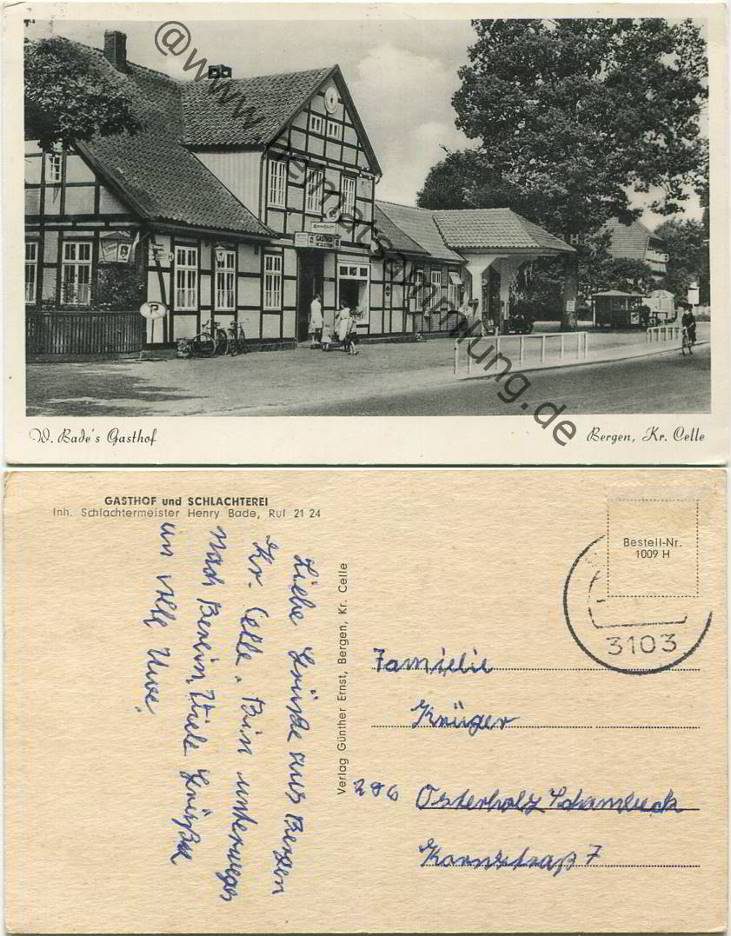 @www.heimatsammlung.de
W. Bade's Gasthof
Bergen, Kr. Celle
GASTHOF und SCHLACHTEREI
Inh. Schlachtermeister Henry Bade, Ruf 21 24
Bestell-Nr.
1009 H
3103
Verlag Günther Ernst, Bergen, Kr. Celle
Liebe Grüße aus Bergen
Kr. Celle. Bin unterwegs
nach Berlin. Viele Grüße
Uwe.
Familie
Krüger
286 Osterholz Scharmbeck
7